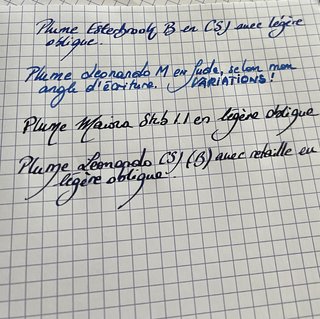 Plume Esterbrook B en CSJ avec légère
oblique.
Plume Leonardo M en fude, selon mon
angle d'écriture. VARIATIONS !
Plume Maiora Stub 1.1 en légère oblique
Plume Leonardo CSJ (B) avec retaille en
légère oblique.